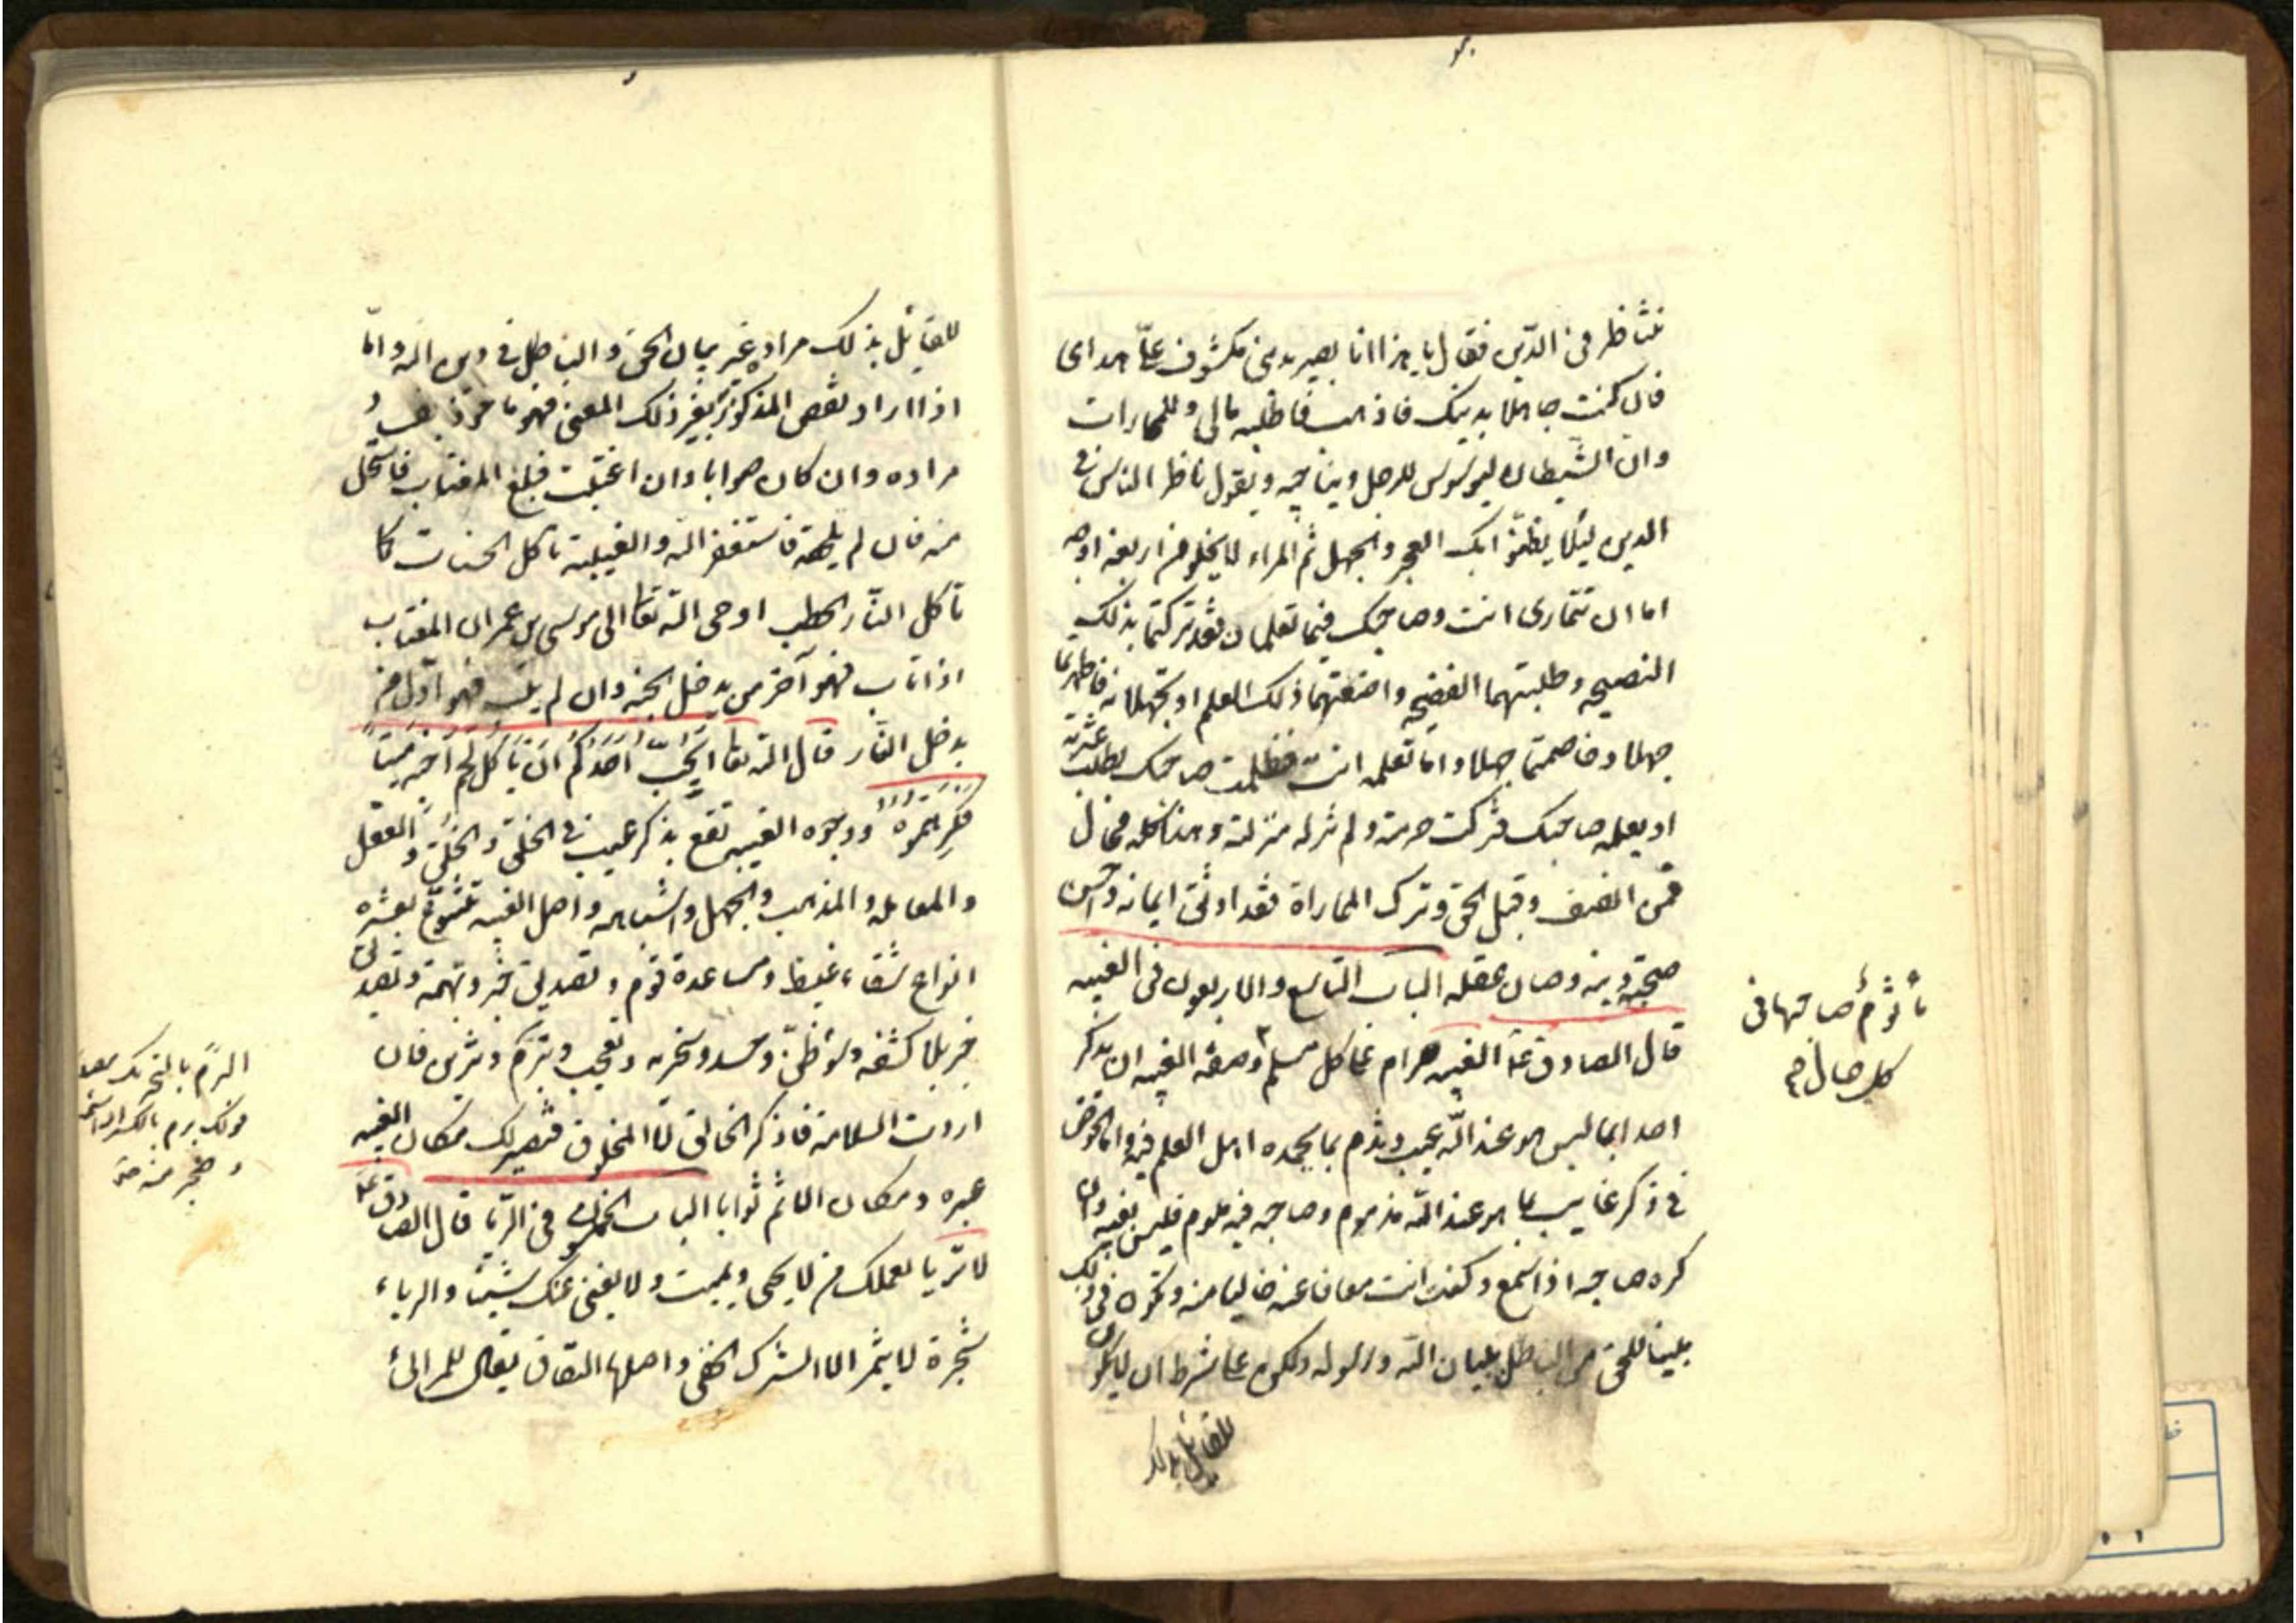 نتناظر فى الدّين فقال يا هذا انا بصير بدينى مكشوف علىّ هداى
فان كنت جاهلا بدينك فاذهب فاطلبه مالى وللمارات
وان الشيطان ليوسوس للرجل ويناجيه ويقول ناظر الناس فى
الدين ليلا يظنّوا بك العجز والجهل ثم المراء لا يخلو من اربعة اوجه
اما ان تتمارى انت وصاحبك فيما تعلمان فقد تركتما بذلك
النصيحه وطلبتهما الفضيحه واضعتهما ذلك العلم او تجهلانه فاظهرتما
جهلا وخاصمتما جهلا واما تعلمه انت فظلمت صاحبك بطلب عثرته
او يعلمه صاحبك فتركت حرمته ولم تنزله منزلته وهذا كله محال
فمن انصف وقبل الحق وترك المماراة فقد اوثق ايمانه واحسن
صحبة دينه وصان عقله الباب التاسع والاربعون فى الغيبه
قال الصادق ع الغيبه حرام على كل مسلم وصفة الغيبه ان يذكر
احد ابما ليس هو عند الله عيب ويذم بما يحمده اهل العلم فيه واما الخوض
فى ذكر غايب بما هو عند الله مذموم وصاحبه فيه ملوم فليس بغيبه وان
كره صاحبه اذا سمع وكنت انت معافا عنه خاليا منه وتكون فى ذلك
مبينا للحق من الباطل ببيان الله ورسوله ولكن على شرط ان لا يكون
للقائل بذلك
مأثوم صاحبها فى
كل حال
للقائل بذلك مراد غير بيان الحق والباطل فى دين الله واما
اذا اراد نقص المذكور بغير ذلك المعنى فهو ماخوذ بفساد
مراده وان كان صوابا وان اغتبت فبلغ المغتاب فاستحل
منه فان لم يلحقه فاستغفر الله والغيبة تاكل الحسنات كما
تاكل النّار الحطب اوحى الله تعا الى موسى بن عمران المغتاب
اذا تاب فهو آخر من يدخل الجنه وان لم يتب فهو اوّل من
يدخل النّار قال الله تعا ايحبّ احدكم ان ياكل لحم اخيه ميتا
فكرهتموه ووجوه الغيبه تقع بذكر عيب فى الخلق والخلق والعقل
والمعامله والمذهب والجهل واشباهه واصل الغيبه تتنوع بعشره
انواع شفاء غيظ ومساعدة قوم وتصديق خبر وتهمة وتصديق
خبر بلا كشفه وسؤ ظنّ وحسد وسخريه وتعجب وتبرّم وتزين فان
اردت السلامة فاذكر الخالق لا المخلوق فيصير لك مكان الغيبه
عبره ومكان الاثم ثوابا الباب الخمسون فى الرّيا قال الصادق ع
لا تراى بعملك من لا يحيى ويميت ولا يغنى عنك شيئا والرياء
شجرة لا يثمر الا الشرك الخفى واصلها النفاق يقال للمرائى
البرم بالتحريك مصدر
قولك برم بالكسر اذا سئم
وضجر منه